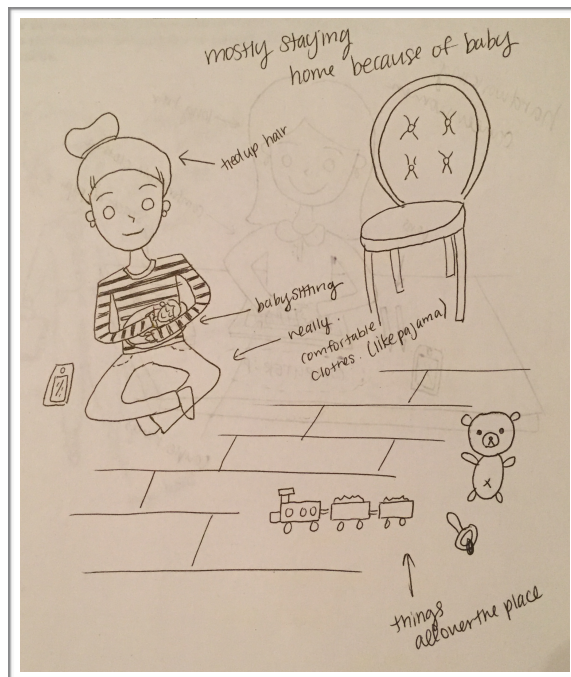 mostly staying
home because of baby
tied up hair
babysitting
really
comfortable
clothes. (like pajama)
things
all over the place